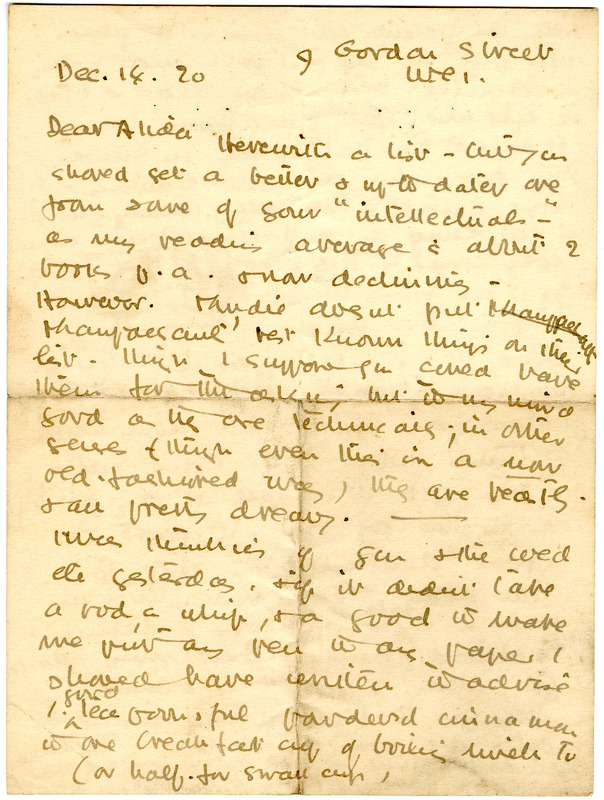 9 Gordon Street
Dec. 14. 20 WC1.
Dear Alida
Herewith a list - but you
should get a better & up-to-dater one
from some of your "intellectuals" -
as my reading average is about 2
books p.a. & now declining -
However. Mudie doesn't put
Maupassant's best known things on their
list - though I suppose you could have
them for the asking; but to my mind
good as they are technically; in other
senses & though even this in a now
old-fashioned way, they are beastly.
& all pretty dreary. —
I was thinking of you & the cold
etc yesterday. & if it didn't take
a rod, a whip, & a goad to make
me put any pen to any paper I
should have written to advise
1 good teaspoonful powdered cinnamon
to one breakfast cup of boiling milk to
(or half. for small cup,